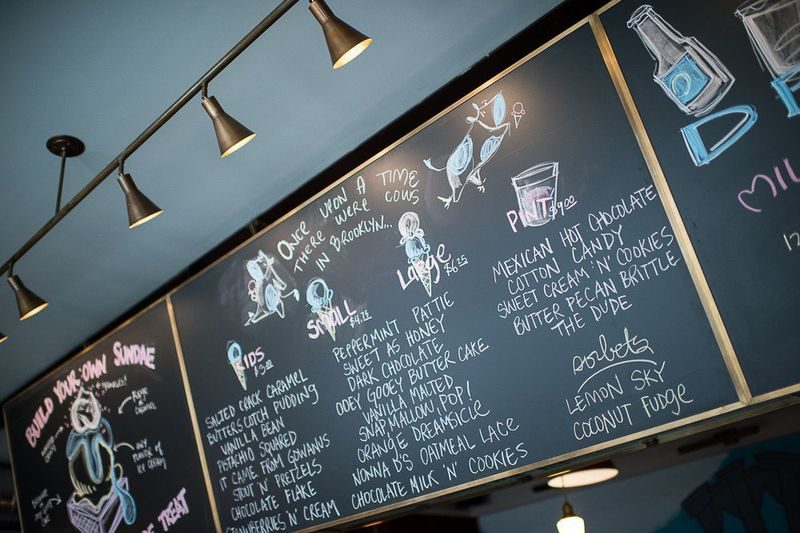 BUILD YOUR OWN SUNDAE
ANY
OF
ICE CREAM
TREAT
ONCE UPON A TIME
THERE WERE COWS
IN BROOKLYN...
KIDS
SMALL
$4.75
LARGE
$6.25
PINT $9.00
SALTED CRACK CARAMEL
BUTTERSCOTCH PUDDING
VANILLA BEAN
PISTACHIO SQUARED
IT CAME FROM GOWANUS
STOUT 'N' PRETZELS
CHOCOLATE FLAKE
STRAWBERRIES 'N' CREAM
PEPPERMINT PATTIE
SWEET AS HONEY
DARK CHOCOLATE
OOEY GOOEY BUTTER CAKE
VANILLA MALTED
SNAP, MALLOW, POP!
ORANGE DREAMSICLE
NONNA D'S OATMEAL LACE
CHOCOLATE MILK 'N' COOKIES
MEXICAN HOT CHOCOLATE
COTTON CANDY
SWEET CREAM 'N' COOKIES
BUTTER PECAN BRITTLE
THE DUDE
SORBETS
LEMON SKY
COCONUT FUDGE